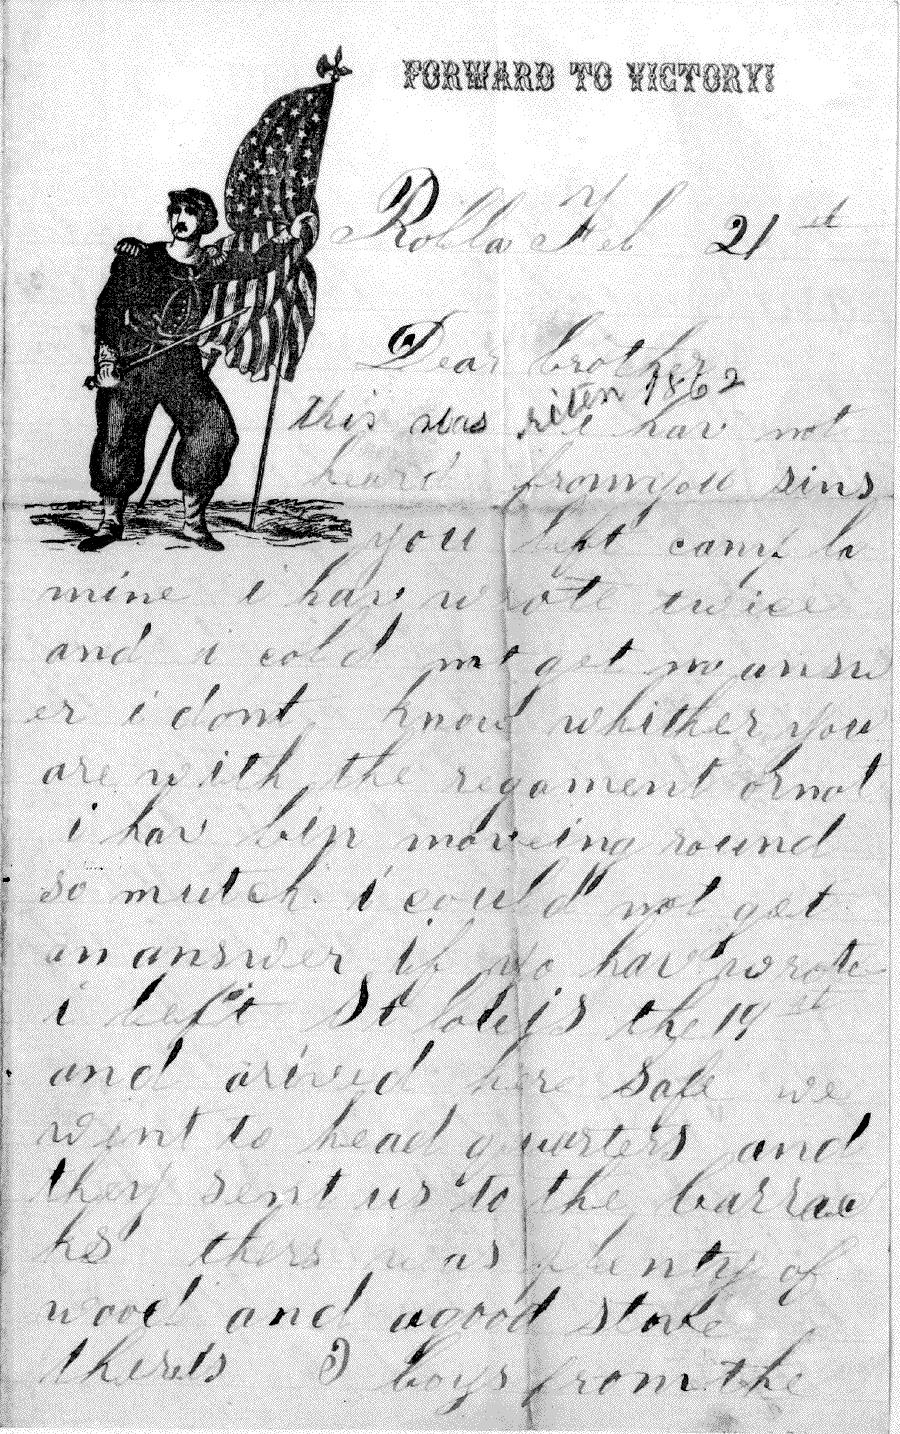 FORWARD TO VICTORY!
Rolla Feb 21st
Dear brother
this was riten 1862
i hav not
heard from you sins
you left camp la
mine i hav wrote twice
and i cold not get no answ
er i dont know whither you
are with the regament or not
i hav bin moveing round
so mutch i could not get
an answer if yo hav wrote
i left St louis the 19st
and arived here safe we
went to head quarters and
they sent us to the barrac
ks thers was plenty of
wood and a good stove
theris boys from the